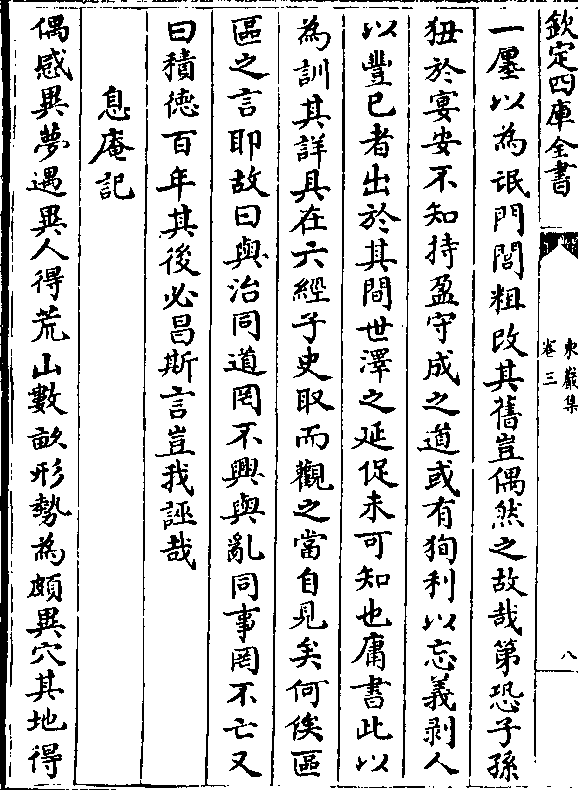 欽定四庫全書
東巖集
卷三
八
一廛以為氓門閭粗改其舊豈偶然之故哉第恐子孫
狃於宴安不知持盈守成之道或有狥利以忘義剥人
以豐己者出於其間世澤之延促未可知也庸書此以
為訓其詳具在六經子史取而觀之當自見矣何俟區
區之言耶故曰與治同道罔不興與亂同事罔不亡又
曰積德百年其後必昌斯言豈我誣哉
息庵記
偶感異夢遇異人得荒山數畝形勢為頗異穴其地得